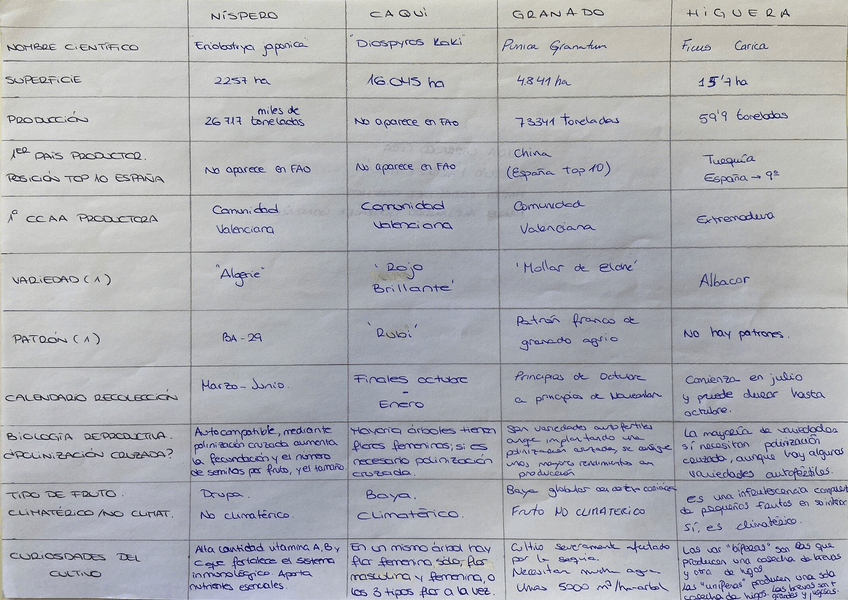 NÍSPERO CAQUI GRANADO HIGUERA
NOMBRE CIENTÍFICO Eriobotrya japonica "Diospyros Kaki" Punica Granatum Ficus Carica
SUPERFICIE 2257 ha 16.045 ha 4841 ha 15'7 ha
PRODUCCIÓN 26717 miles de toneladas No aparece en FAO 73341 toneladas 59'9 toneladas
1ER PAÍS PRODUCTOR.
POSICIÓN TOP 10 ESPAÑA
No aparece en FAO
No aparece en FAO
China
(España top 10)
Turquía
España → 9º
1ª CCAA PRODUCTORA
Comunidad
Valenciana
Comunidad
Valenciana
Comunidad
Valenciana
Extremadura
VARIEDAD (1)
"Algerie"
'Rojo
Brillante'
'Mollar de Elche'
Albacor
PATRÓN (1)
BA-29
'Rubí'
Patrón franco de
granado agrio
No hay patrones.
CALENDARIO RECOLECCIÓN
Marzo-Junio.
Finales octubre
-
Enero
Principios de Octubre
a principios de Noviembre
Comienza en julio
y puede durar hasta
octubre.
BIOLOGÍA REPRODUCTIVA.
¿POLINIZACIÓN CRUZADA?
Autocompatible, mediante
polinización cruzada aumenta
la fecundación y el número
de semillas por fruto, y el tamaño
Mayoría árboles tienen
flores femeninas; si es
necesario polinización
cruzada.
Son variedades autofértiles
aunque implantando una
polinización cruzada, se consigue
unos mayores rendimientos en
producción
La mayoría de variedades
sí necesitan polinización
cruzada, aunque hay algunas
variedades autofértiles.
TIPO DE FRUTO.
CLIMATÉRICO/NO CLIMAT.
Drupa.
No climatérico.
Baya.
Climatérico.
Baya globular
Fruto NO CLIMATERICO
es una infrutescencia compuesta
de pequeños frutos en su interior
sí, es climatérico.
CURIOSIDADES DEL
CULTIVO
Alta cantidad vitamina A, B y
C que fortalece el sistema
inmunológico. Aporta
nutrientes esenciales.
En un mismo árbol hay
flor femenina sólo, flor
masculina y femenina, o
los 3 tipos flor a la vez.
Cultivo severamente afectado
por la sequía.
Necesitan mucha agua
Unas 5000 m³/ha
Las var "bíferas" son las que
producen una cosecha de brevas
y otra de higos
Las "uníferas" producen una sola
cosecha de higos. Las brevas son +
grandes y